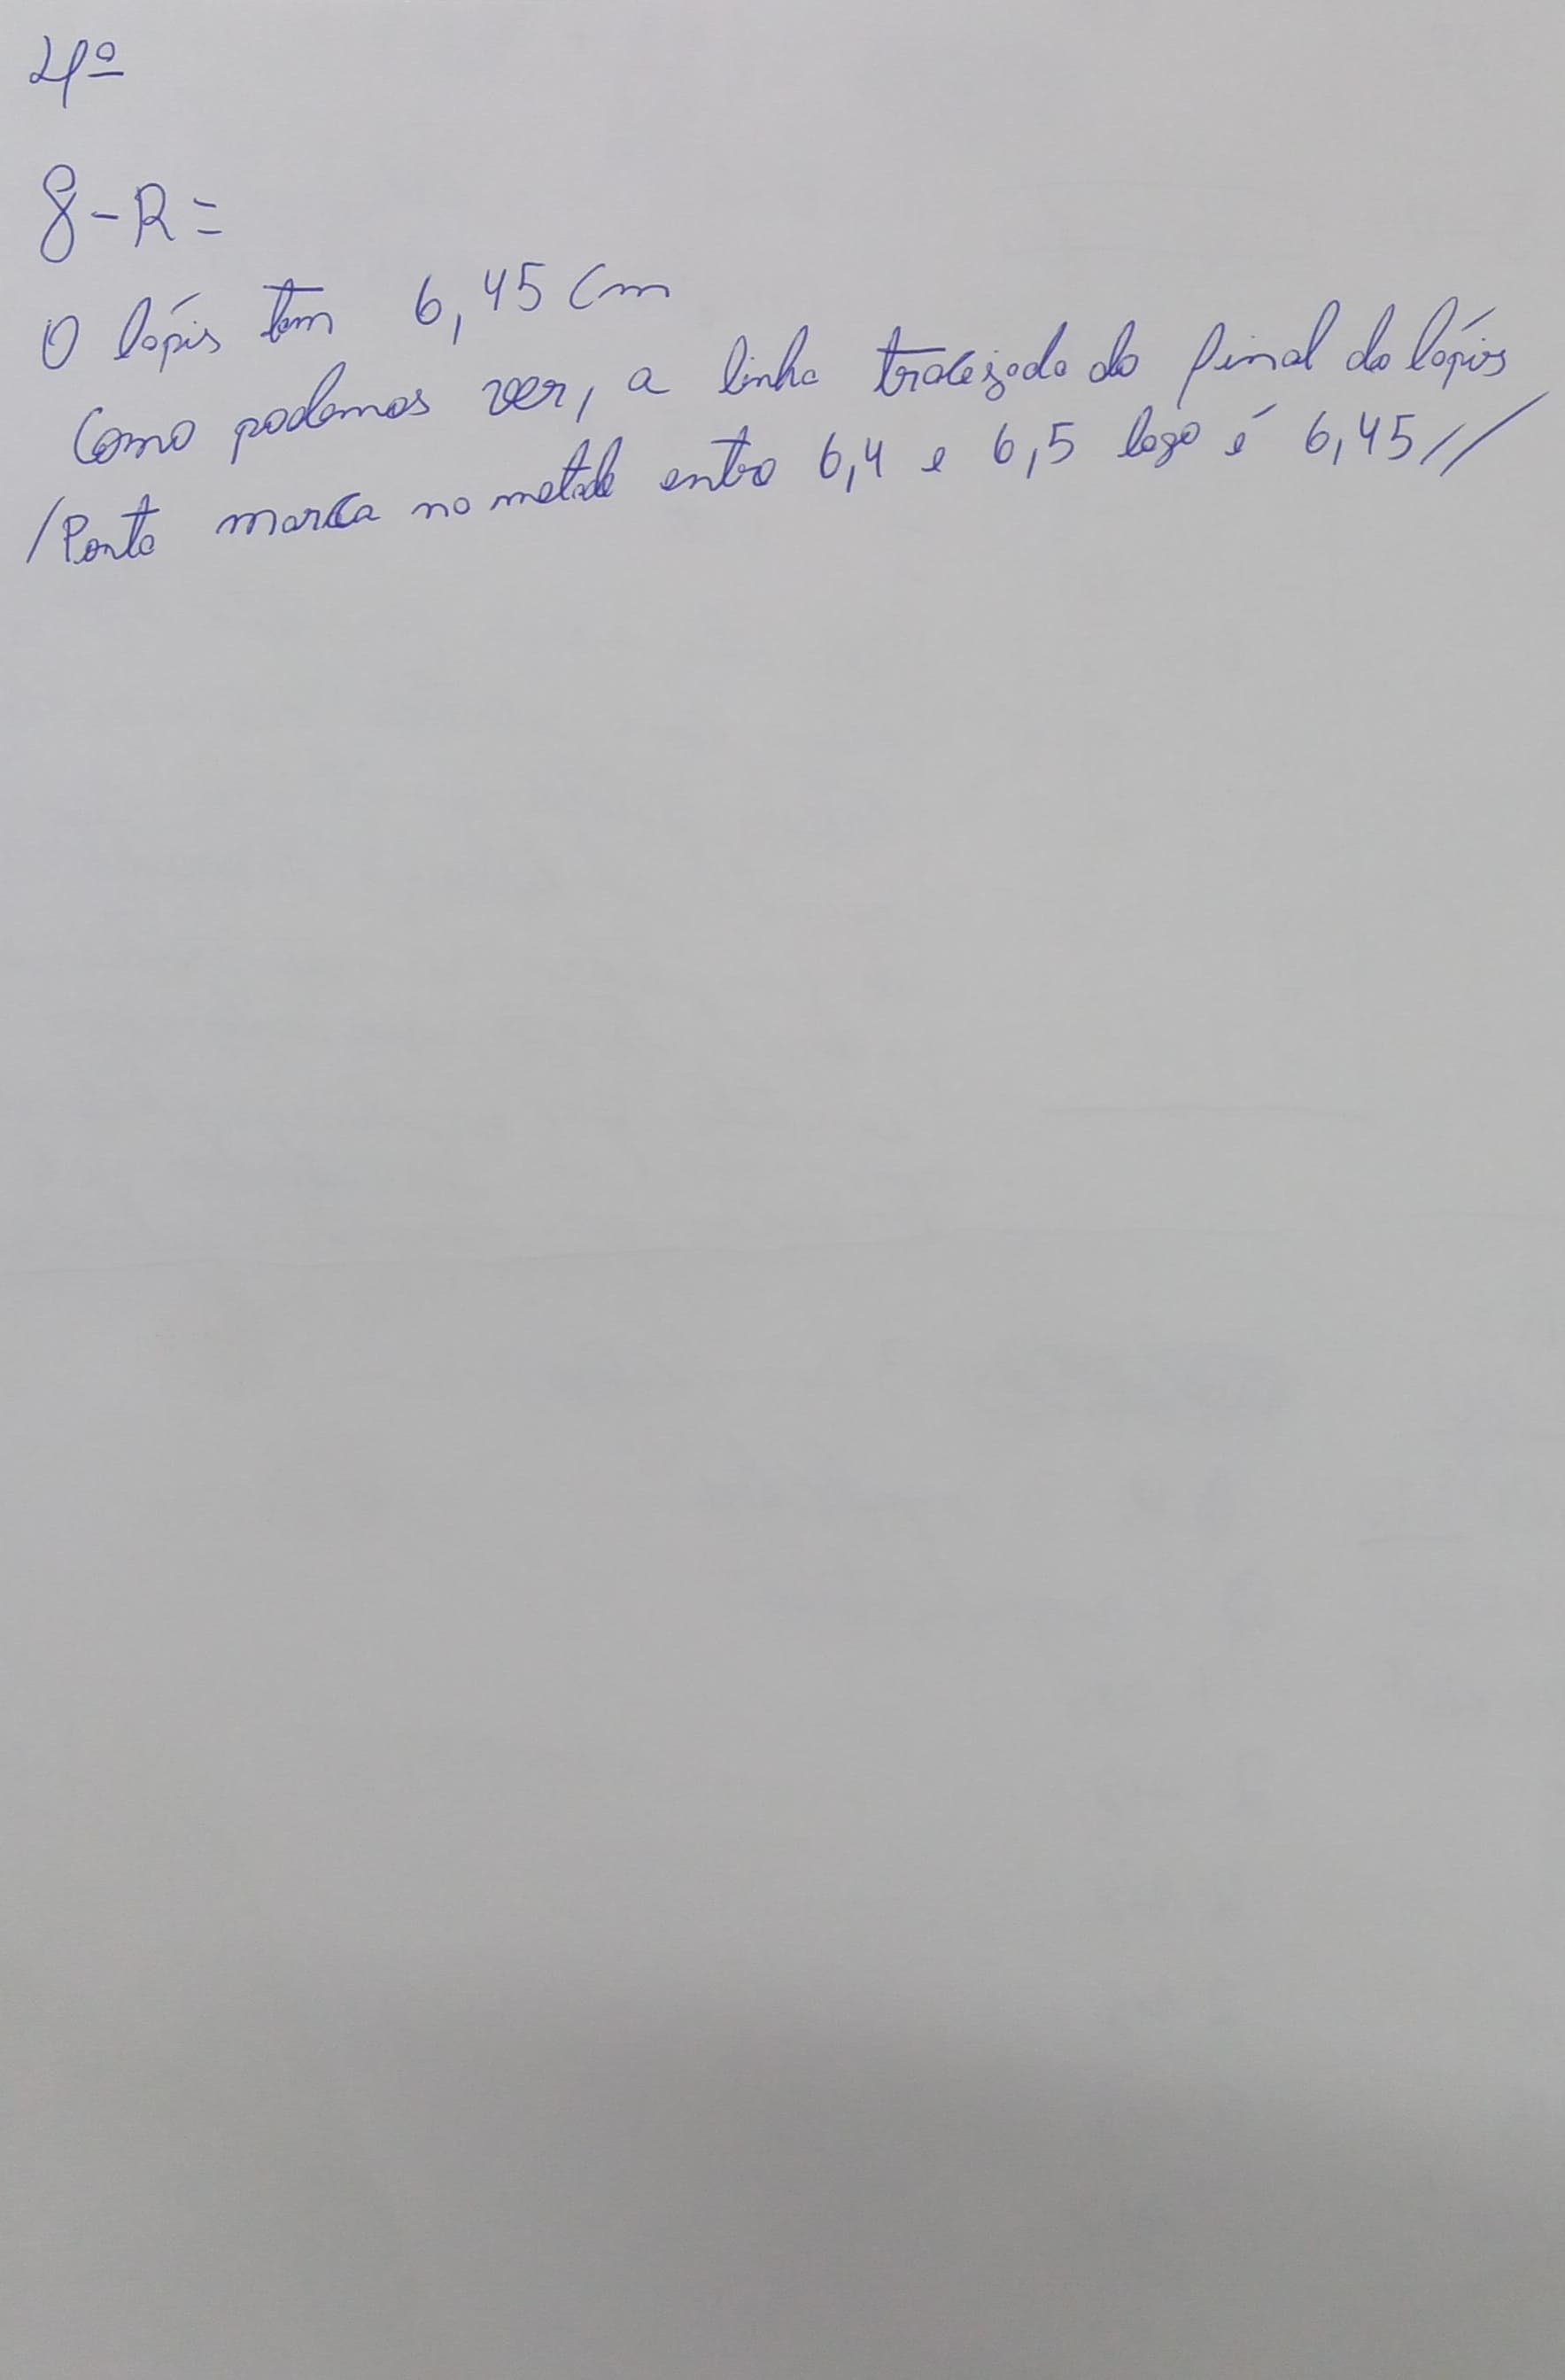 4º
8-R=
O lápis tem 6,45 cm
Como podemos ver, a linha tracejada do final do lápis
/Ponta marca na metade entre 6,4 e 6,5 logo é 6,45//